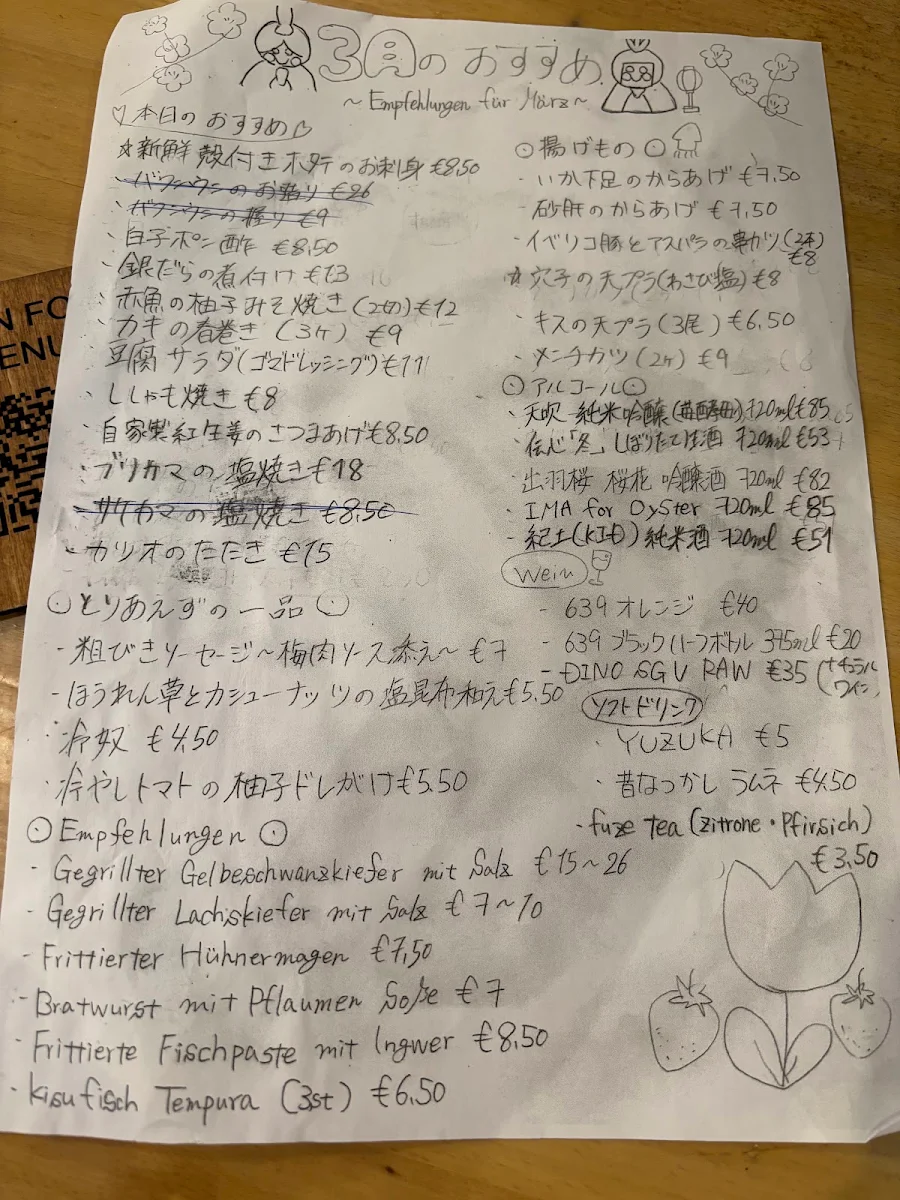 3月のおすすめ
~ Empfehlungen für März ~
♡本日のおすすめ♡
☆新鮮 殻付きホタテのお刺身 €8,50
・バフンウニのお造り €26
・バフンウニの握り €9
・白子ポン酢 €8,50
・銀だらの煮付け €13
・赤魚の柚子みそ焼き(2切) €12
・カキの春巻き (3ヶ) €9
・豆腐サラダ(ゴマドレッシング) €11
・ししゃも焼き €8
・自家製紅生姜のさつまあげ €8,50
・ブリカマの塩焼き €18
・サケカマの塩焼き €8,50
・カツオのたたき €15
⊙とりあえずの一品⊙
- 粗びきソーセージ~梅肉ソース添え~ €7
・ほうれん草とカシューナッツの塩昆布和え €5,50
・冷奴 €4,50
・冷やしトマトの柚子ドレがけ €5,50
⊙ Empfehlungen ⊙
- Gegrillter Gelbeschwanzkiefer mit Salz €15~26
- Gegrillter Lachskiefer mit Salz €7~10
- Frittierter Hühnermagen €7,50
- Bratwurst mit Pflaumen Soße €7
- Frittierte Fischpaste mit Ingwer €8,50
- Kisufisch Tempura (3st) €6,50
⊙揚げもの⊙
- いか下足のからあげ €7,50
・砂肝のからあげ €7,50
・イベリコ豚とアスパラの串カツ(2本) €8
☆穴子の天プラ(わさび塩) €8
・キスの天プラ(3尾) €6,50
・メンチカツ(2ヶ) €9
⊙アルコール⊙
・天吹 純米吟醸(苺酵母) 720ml €85
・伝心「冬」しぼりたて生酒 720ml €53
・出羽桜 桜花 吟醸酒 720ml €82
- IMA for Oyster 720ml €85
・紀土(KID) 純米酒 720ml €51
Wein
- 639 オレンジ €40
・639 ブラックハーフボトル 375ml €20
- DINO SGV RAW €35 (ナチュラルワイン)
ソフトドリンク
・YUZUKA €5
・昔なつかしラムネ €4,50
- fuze tea (zitrone・Pfirsich)
€3,50
N FO
ENU